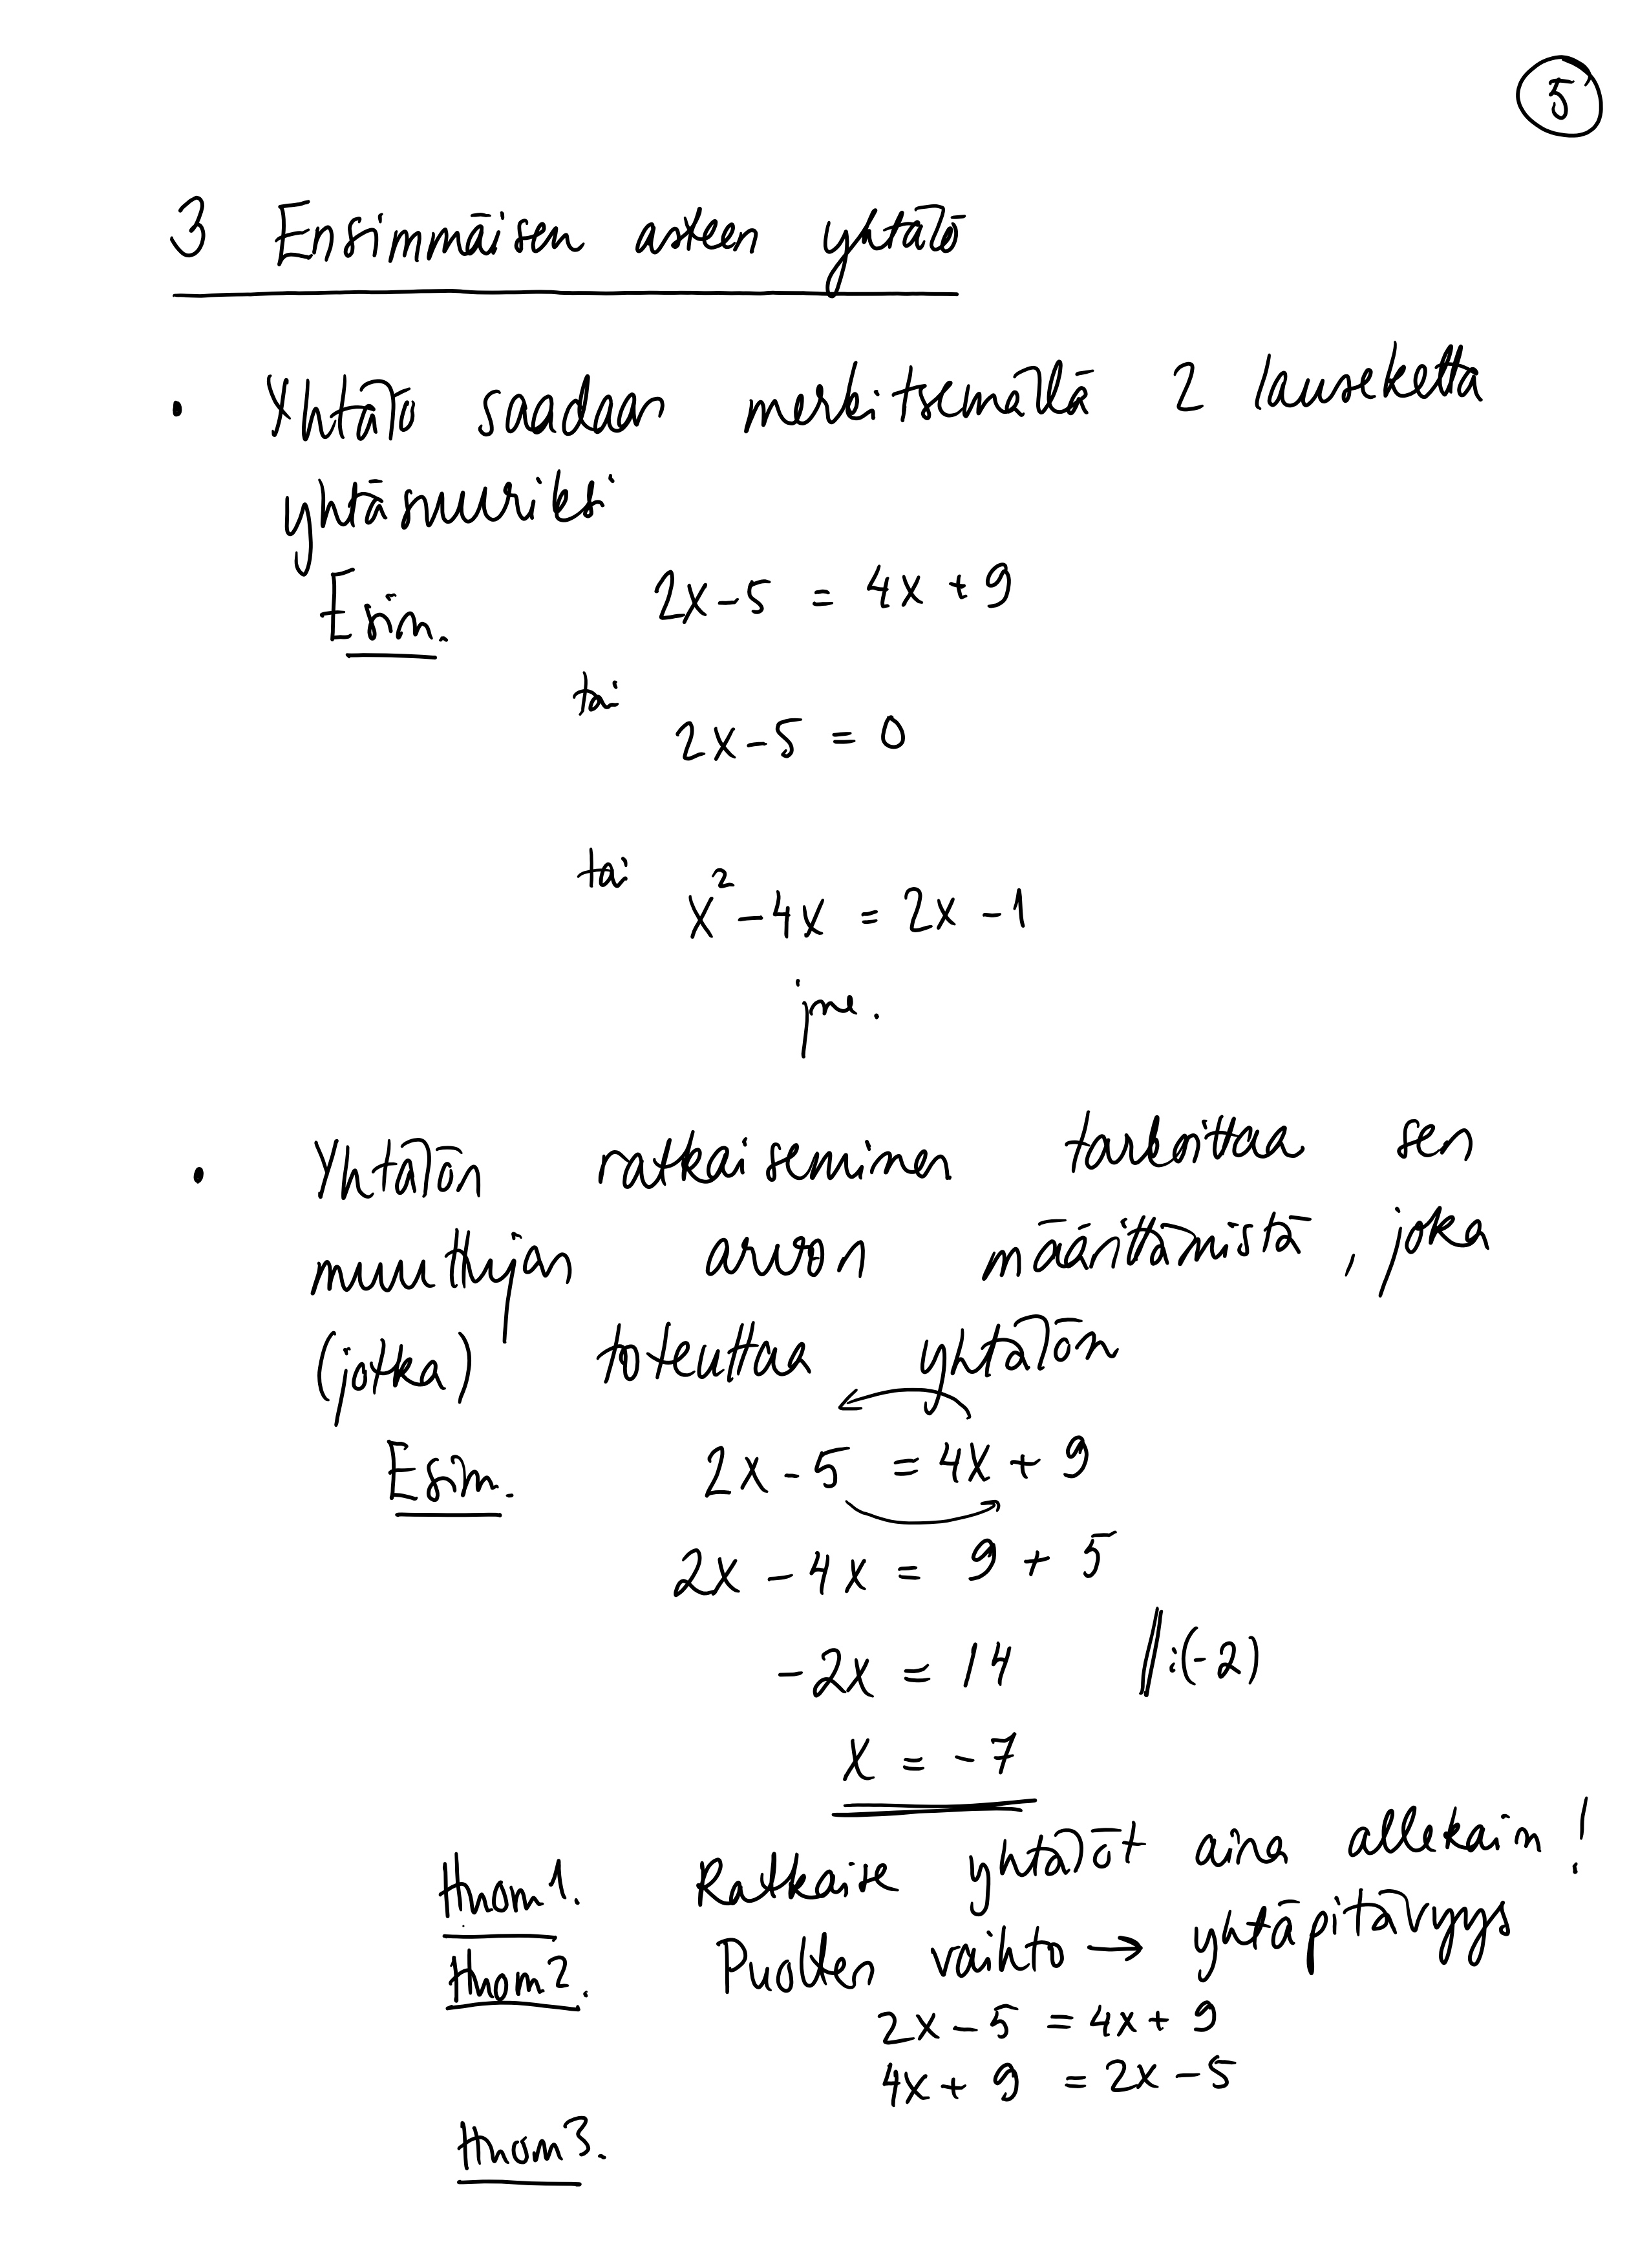 5
3 Ensimmäisen asteen yhtälö
• Yhtälö saadaan merkitsemällä 2 lauseketta
yhtäsuuriksi
Esim. 2x - 5 = 4x + 9
tai
2x - 5 = 0
tai
x² - 4x = 2x - 1
jne.
• Yhtälön ratkaiseminen tarkoittaa sen
muuttujan arvon määrittämistä, joka
(jotka) toteuttaa yhtälön
Esim. 2x - 5 = 4x + 9
2x - 4x = 9 + 5
-2x = 14 || :(-2)
x = -7
Huom1. Ratkaise yhtälöt aina allekain!
Huom2. Puolten vaihto → yhtäpitävyys
2x - 5 = 4x + 9
4x + 9 = 2x - 5
Huom3.